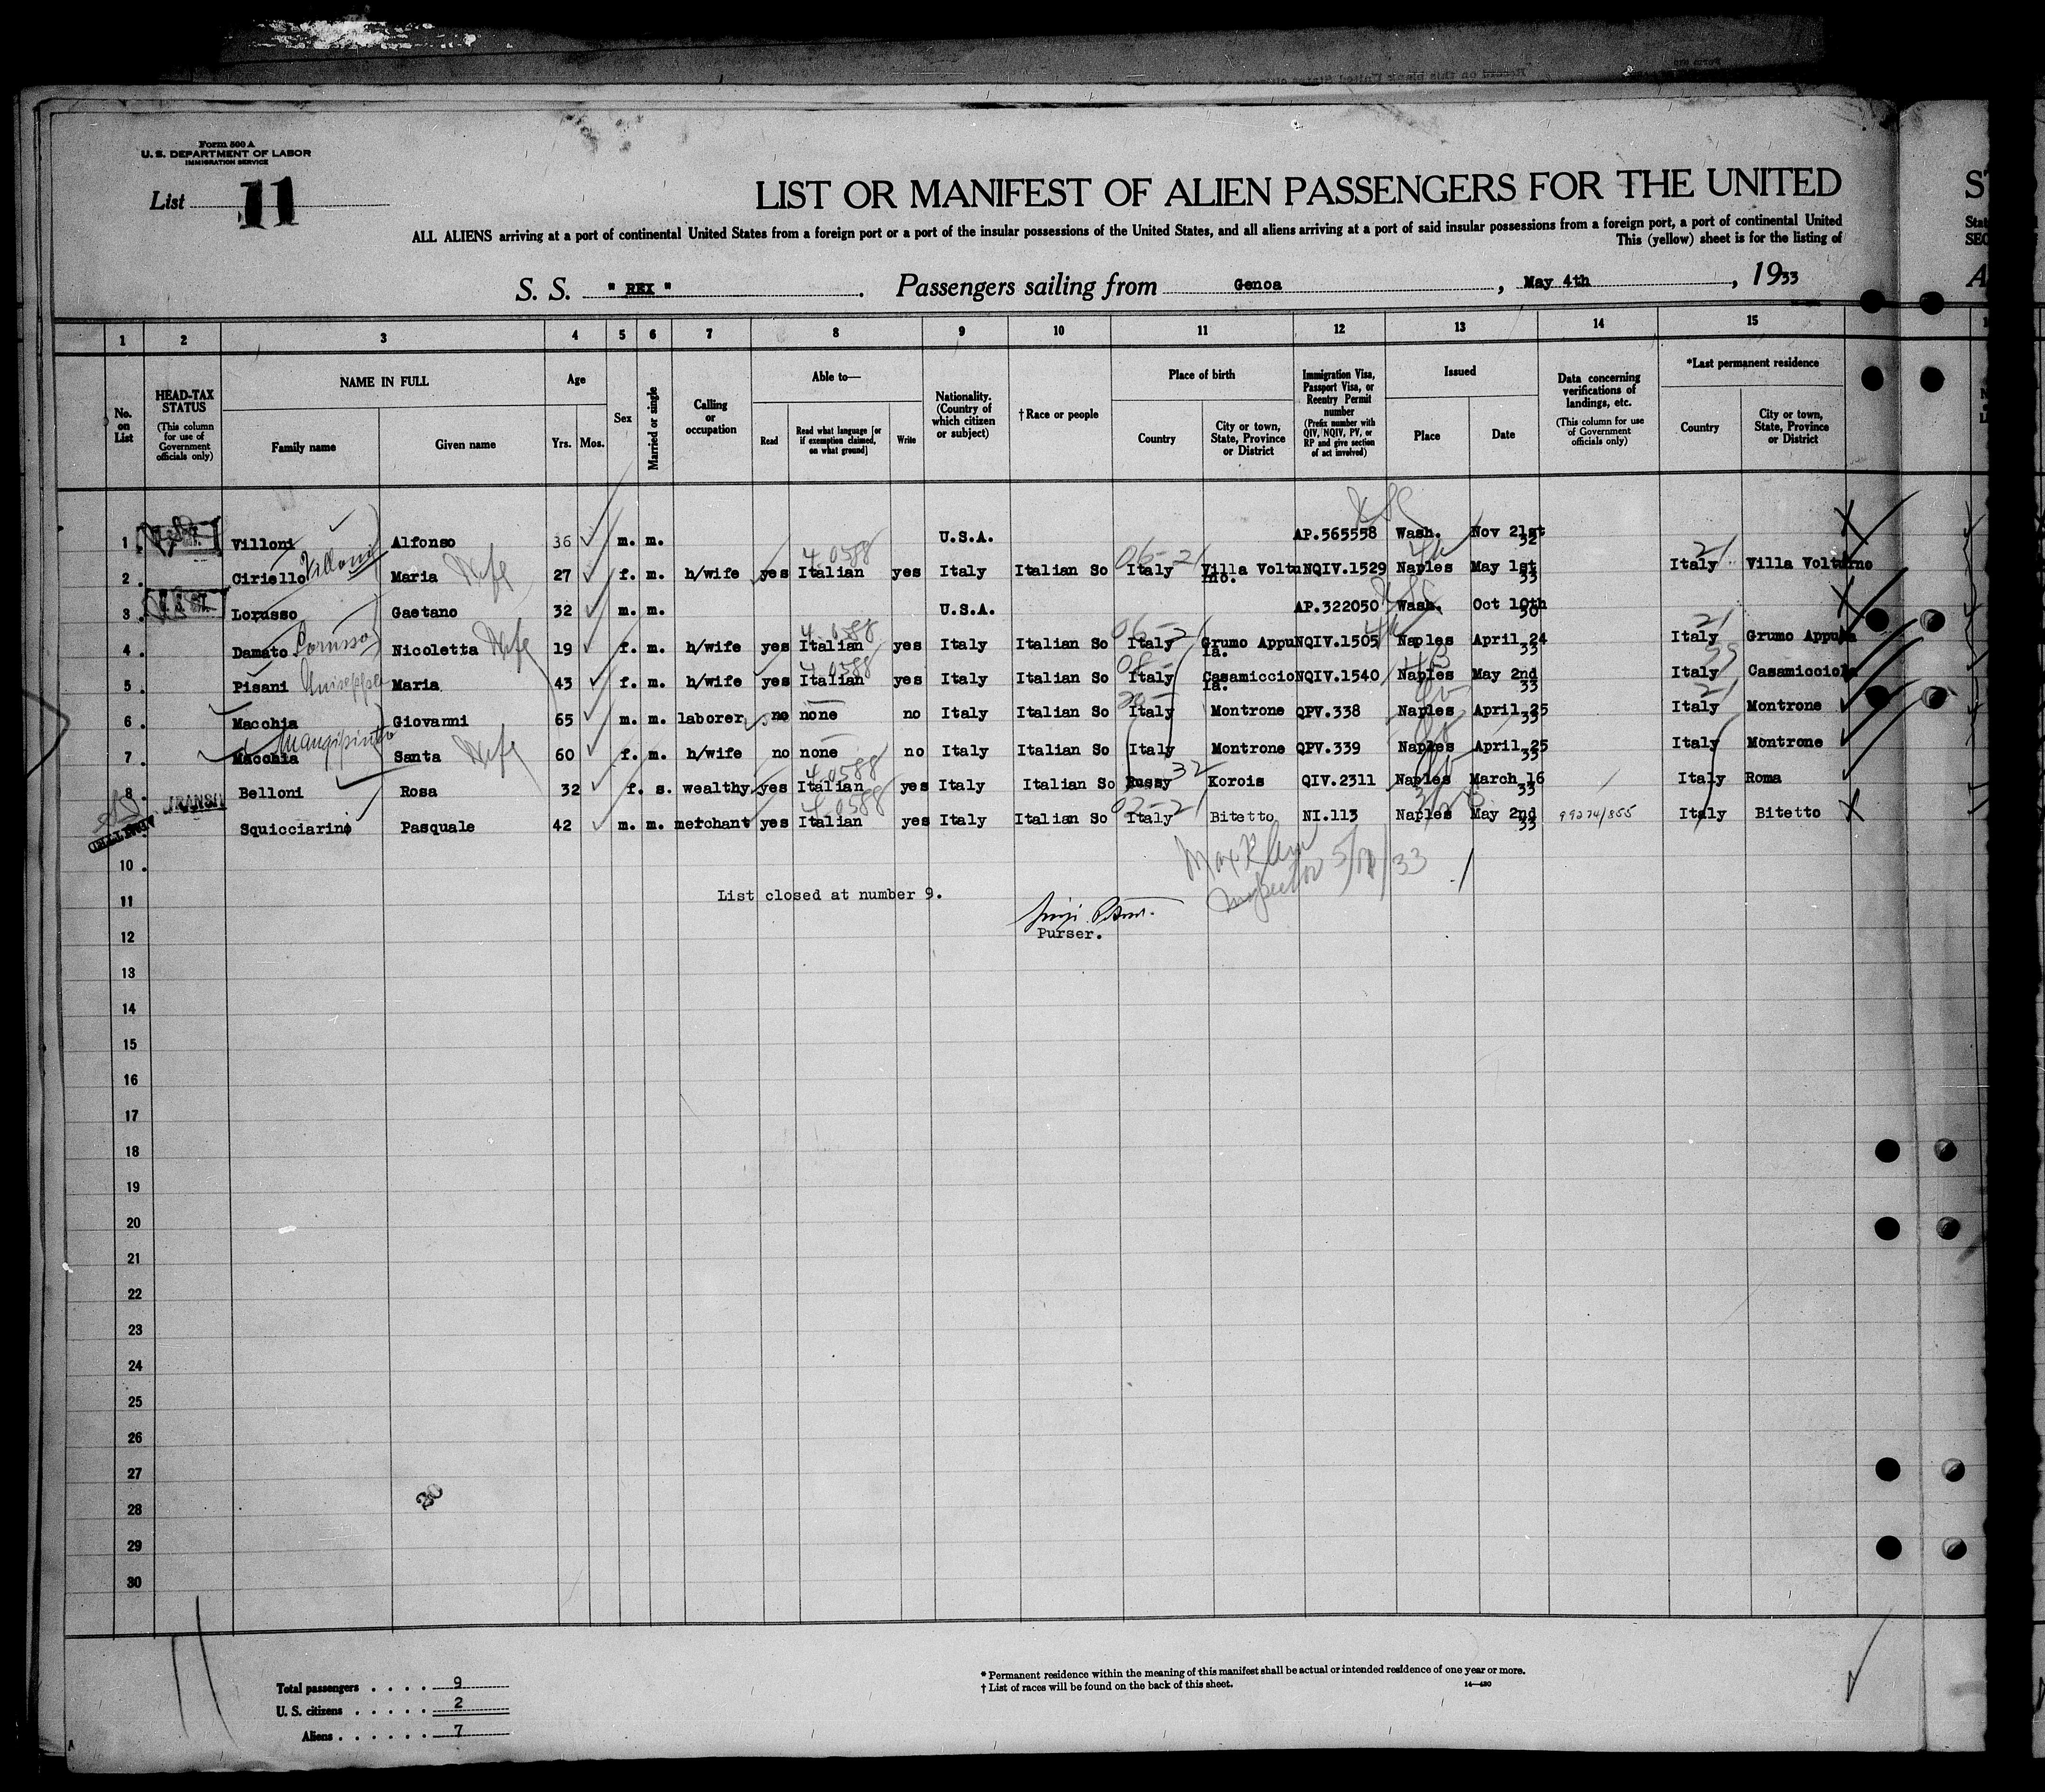 Form 500 A
U. S. DEPARTMENT OF LABOR
IMMIGRATION SERVICE
List 11
LIST OR MANIFEST OF ALIEN PASSENGERS FOR THE UNITED
ALL ALIENS arriving at a port of continental United States from a foreign port or a port of the insular possessions of the United States, and all aliens arriving at a port of said insular possessions from a foreign port, a port of continental United
This (yellow) sheet is for the listing of
S. S. " REX ". Passengers sailing from Genoa, May 4th, 1933
1 2 3 4 5 6 7 8 9 10 11 12 13 14 15
No. on List
HEAD-TAX STATUS (This column for use of Government officials only)
NAME IN FULL
Family name Given name
Age
Yrs. Mos.
Sex
Married or single
Calling or occupation
Able to—
Read
Read what language [or if exemption claimed, on what ground]
Write
Nationality. (Country of which citizen or subject)
† Race or people
Place of birth
Country City or town, State, Province or District
Immigration Visa, Passport Visa, or Reentry Permit number (Prefix number with QIV, NQIV, PV, or RP and give section of act involved)
Issued
Place Date
Data concerning verifications of landings, etc. (This column for use of Government officials only)
*Last permanent residence
Country City or town, State, Province or District
1 Villoni Alfonso 36 m. m. U.S.A. AP.565558 Wash. Nov 21st 32
2 Ciriello Villoni Maria Wife 27 f. m. h/wife yes Italian 4 0588 yes Italy Italian So Italy Villa Voltu rno. NQIV.1529 Naples May 1st 33 Italy Villa Volturno
3 Lorusso Gaetano 32 m. m. U.S.A. AP.322050 Wash. Oct 10th 30
4 Damato Lorusso Nicoletta Wife 19 f. m. h/wife yes Italian 4 0588 yes Italy Italian So Italy Grumo Appu la. NQIV.1505 Naples April 24 33 Italy Grumo Appula
5 Pisani Maria 43 f. m. h/wife yes Italian 4 0588 yes Italy Italian So Italy Casamiccio la. NQIV.1540 Naples May 2nd 33 Italy Casamicciola
6 Macchia Giovanni 65 m. m. laborer no none no Italy Italian So Italy Montrone QPV.338 Naples April 25 33 Italy Montrone
7 Macchia Santa Wife 60 f. m. h/wife no none no Italy Italian So Italy Montrone QPV.339 Naples April 25 33 Italy Montrone
8 Belloni Rosa 32 f. s. wealthy yes Italian 4 0588 yes Italy Italian So Russy Korois QIV.2311 Naples March 16 33 Italy Roma
ADMITTED TRANSIT Squicciarino Pasquale 42 m. m. merchant yes Italian 4 0588 yes Italy Italian So Italy Bitetto NI.113 Naples May 2nd 33 99274/855 Italy Bitetto
10
11 List closed at number 9.
Inspector 33
12 Purser.
13
14
15
16
17
18
19
20
21
22
23
24
25
26
27
28
29
30
30
Total passengers 9
U. S. citizens 2
Aliens 7
* Permanent residence within the meaning of this manifest shall be actual or intended residence of one year or more.
† List of races will be found on the back of this sheet.
14—420